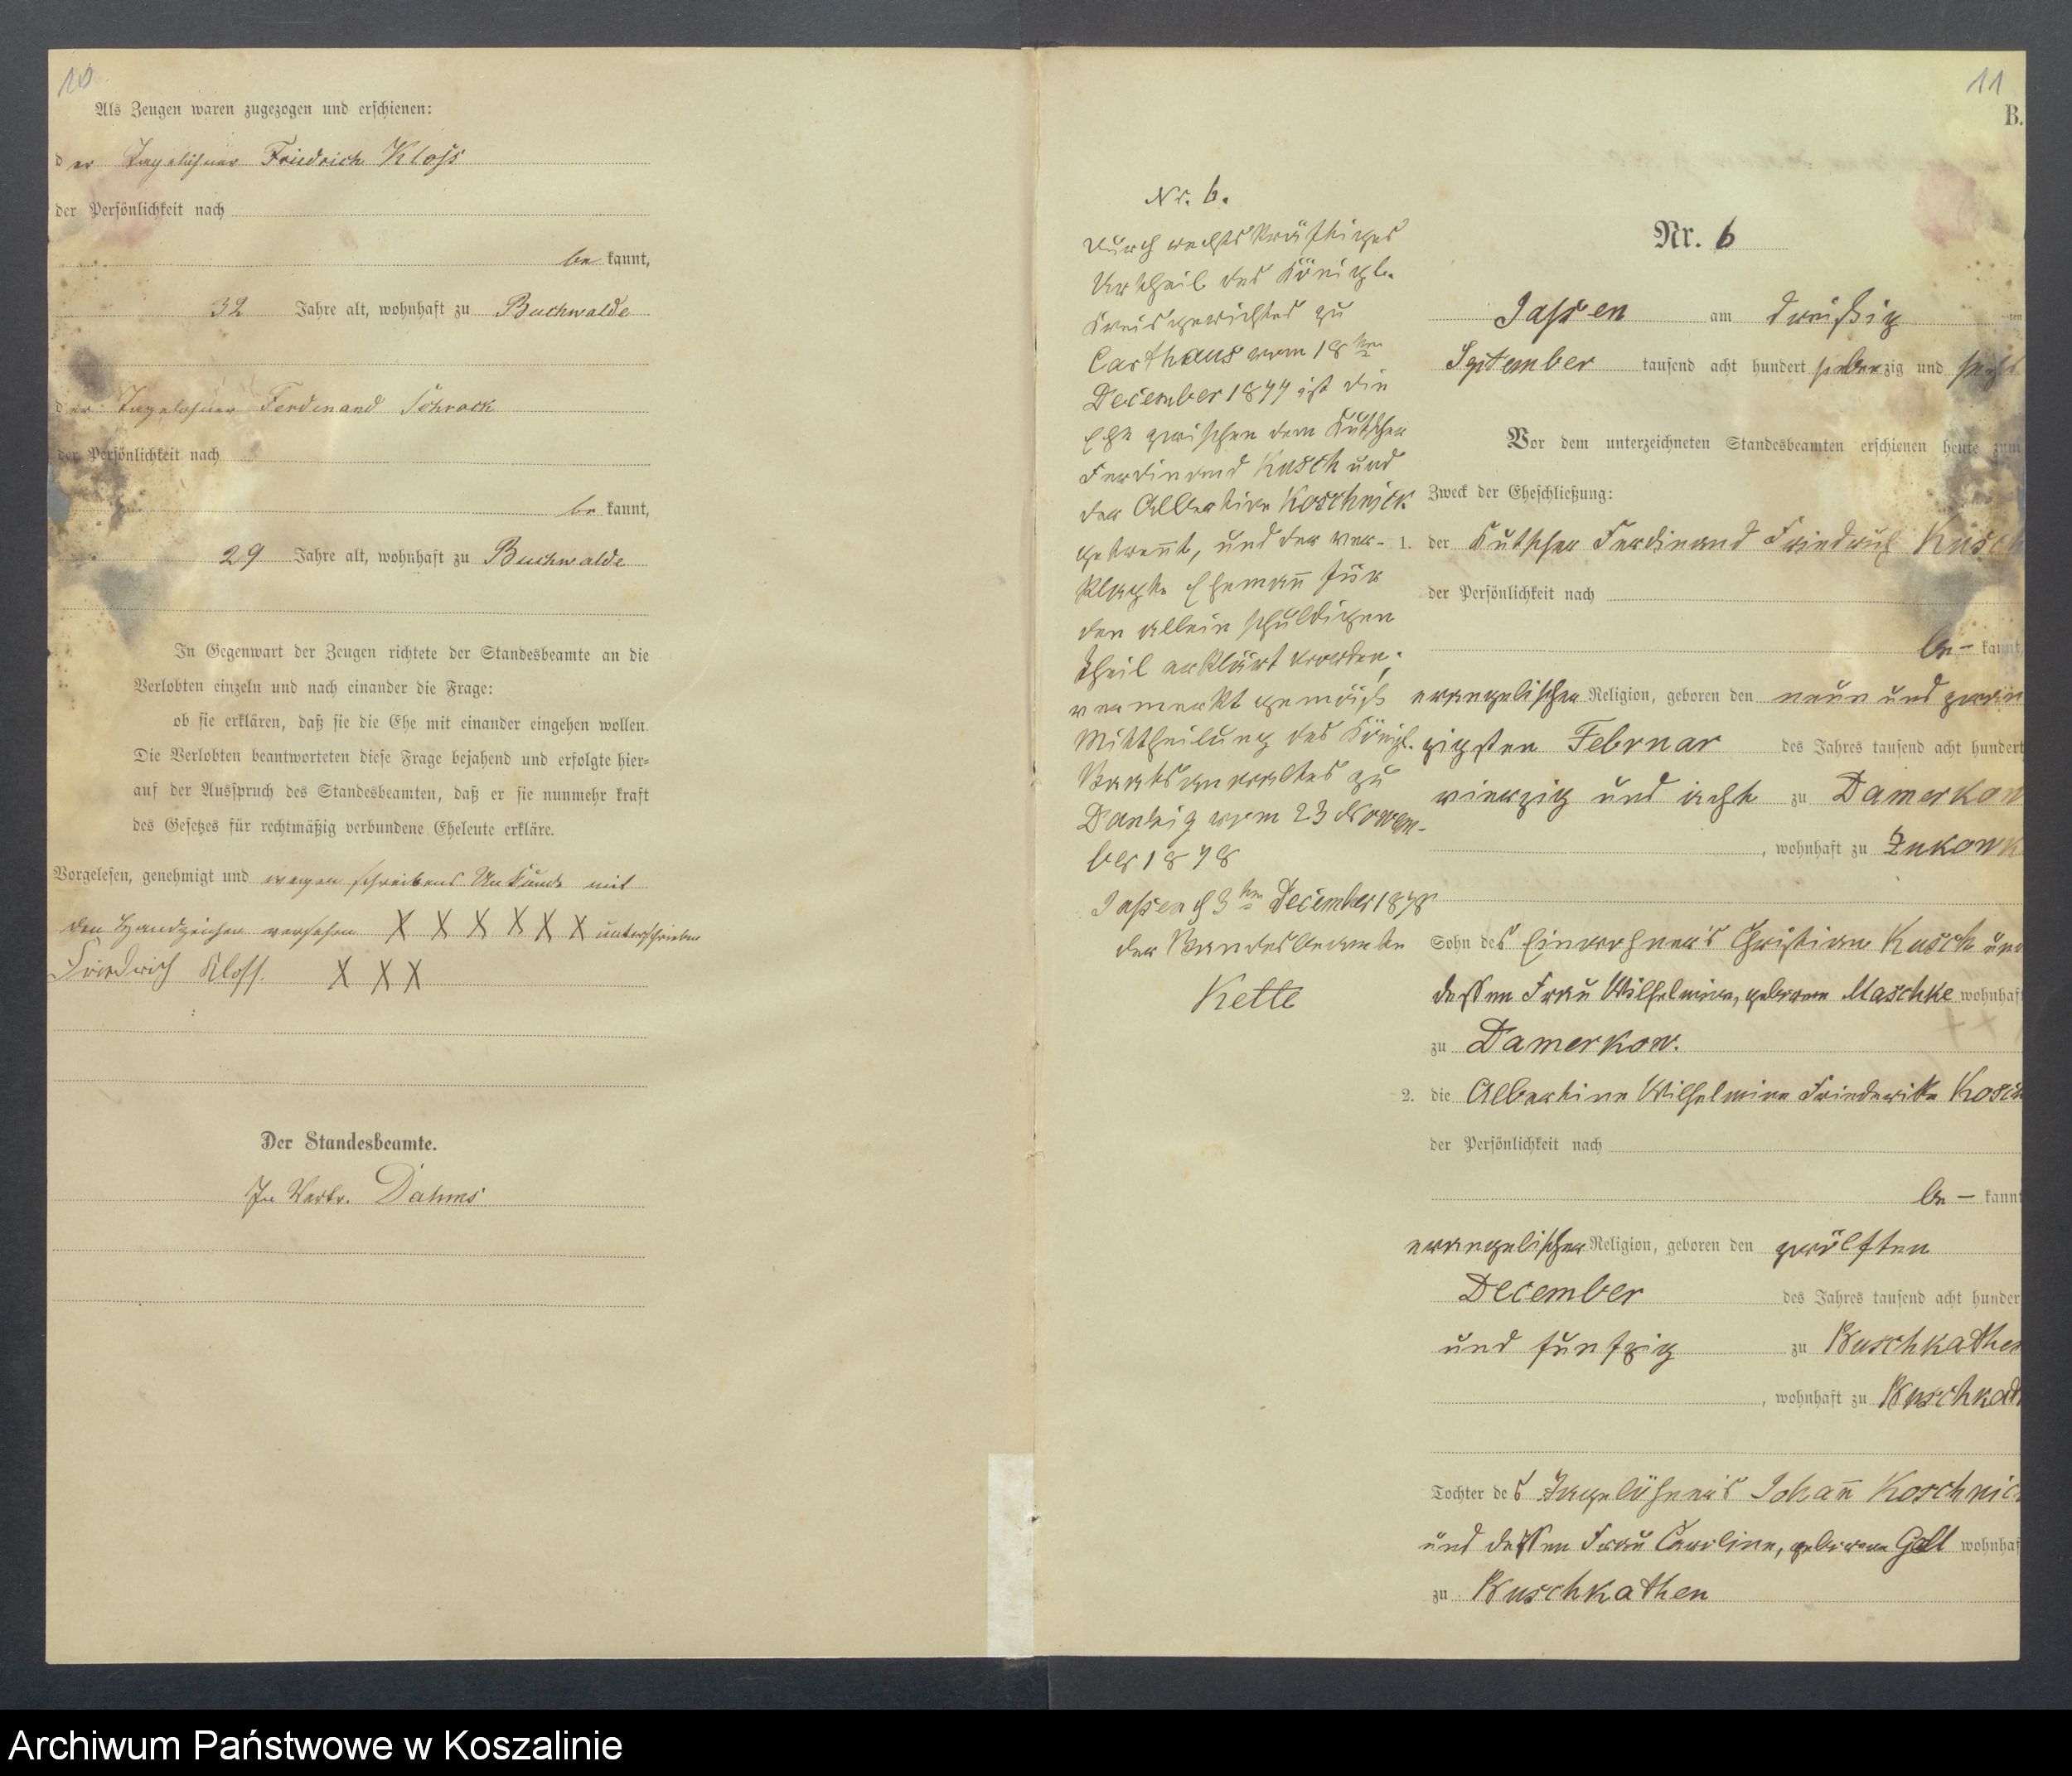 10
Als Zeugen waren zugezogen und erschienen:
der Tagelöhner Friedrich Kloss
der Persönlichkeit nach
be kannt,
32 Jahre alt, wohnhaft zu Buchwalde
der Tagelöhner Ferdinand Schrock
der Persönlichkeit nach
be kannt,
29 Jahre alt, wohnhaft zu Buchwalde
In Gegenwart der Zeugen richtete der Standesbeamte an die
Verlobten einzeln und nach einander die Frage:
ob sie erklären, daß sie die Ehe mit einander eingehen wollen.
Die Verlobten beantworteten diese Frage bejahend und erfolgte hier-
auf der Ausspruch des Standesbeamten, daß er sie nunmehr kraft
des Gesetzes für rechtmäßig verbundene Eheleute erkläre.
Vorgelesen, genehmigt und wegen schreibens Unkunde mit
den Handzeichen versehen X X X X X X unterschrieben
Friedrich Kloss. X X X
Der Standesbeamte.
In Vertr. Dahms
11
B.
Nr. 6.
Durch rechtskräftiges
Urtheil des Königl.
Kreisgerichtes zu
Carthaus vom 18ten
December 1877 ist die
Ehe zwischen dem Kutscher
Ferdinand Kusch und
der Albertine Koschnick
getrennt, und der ver-
klagte Ehemann für
den allein schuldigen
Theil erklärt worden,
vermerkt gemäß
Mittheilung des Königl.
Staatsanwaltes zu
Danzig vom 23 Novem-
ber 1878
Jassen d 3ten December 1878
der Standesbeamte
Kette
Nr. 6
Jassen am dreißig
September tausend acht hundert siebenzig und sechs
Vor dem unterzeichneten Standesbeamten erschienen heute zum
Zweck der Eheschließung:
1. der Kutscher Ferdinand Friedrich Kusch
der Persönlichkeit nach
be- kannt
evangelischer Religion, geboren den neun und zwan
zigsten Februar des Jahres tausend acht hundert
vierzig und acht zu Damerkow
, wohnhaft zu Zukowk
Sohn des Einwohner's Christian Kusch und
dessen Frau Wilhelmine, geborene Maschke wohnhaf
zu Damerkow.
2. die Albertine Wilhelmine Friederike Kosch
der Persönlichkeit nach
be- kannt
evangelischer Religion, geboren den zwölften
December des Jahres tausend acht hunder
und funfzig zu Buschkathen
, wohnhaft zu Buschkath
Tochter des Tagelöhner's Johann Koschnick
und dessen Frau Caroline, geborene Goll wohnhaf
zu Buschkathen
Archiwum Państwowe w Koszalinie